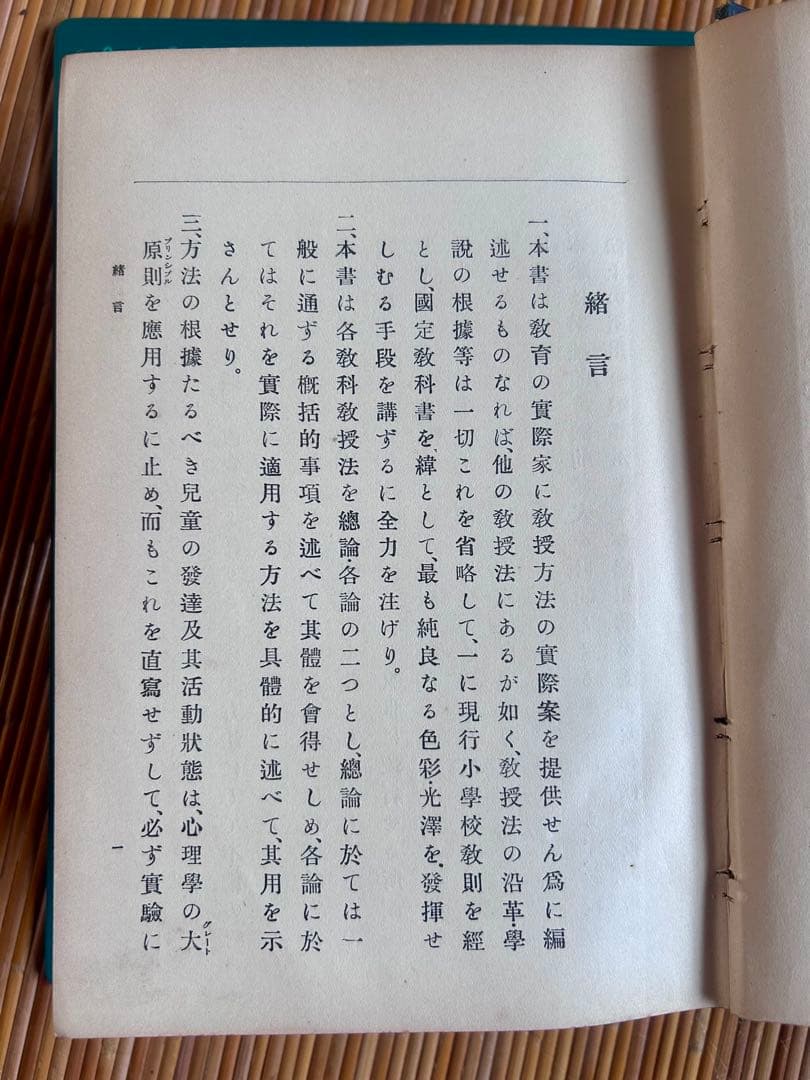 緒言
一、本書は敎育の實際家に敎授方法の實際案を提供せん爲に編
述せるものなれば、他の敎授法にあるが如く、敎授法の沿革・學
說の根據等は一切これを省略して、一に現行小學校敎則を經
とし、國定敎科書を緯として、最も純良なる色彩・光澤を、發揮せ
しむる手段を講ずるに全力を注げり。
二、本書は各敎科敎授法を總論・各論の二つとし、總論に於ては一
般に通ずる槪括的事項を述べて其體を會得せしめ、各論に於
てはそれを實際に適用する方法を具體的に述べて、其用を示
さんとせり。
三、方法の根據たるべき兒童の發達及其活動狀態は、心理學の大
グレート
原則を應用するに止め、而もこれを直寫せずして、必ず實驗に
プリンシプル
緒言
一